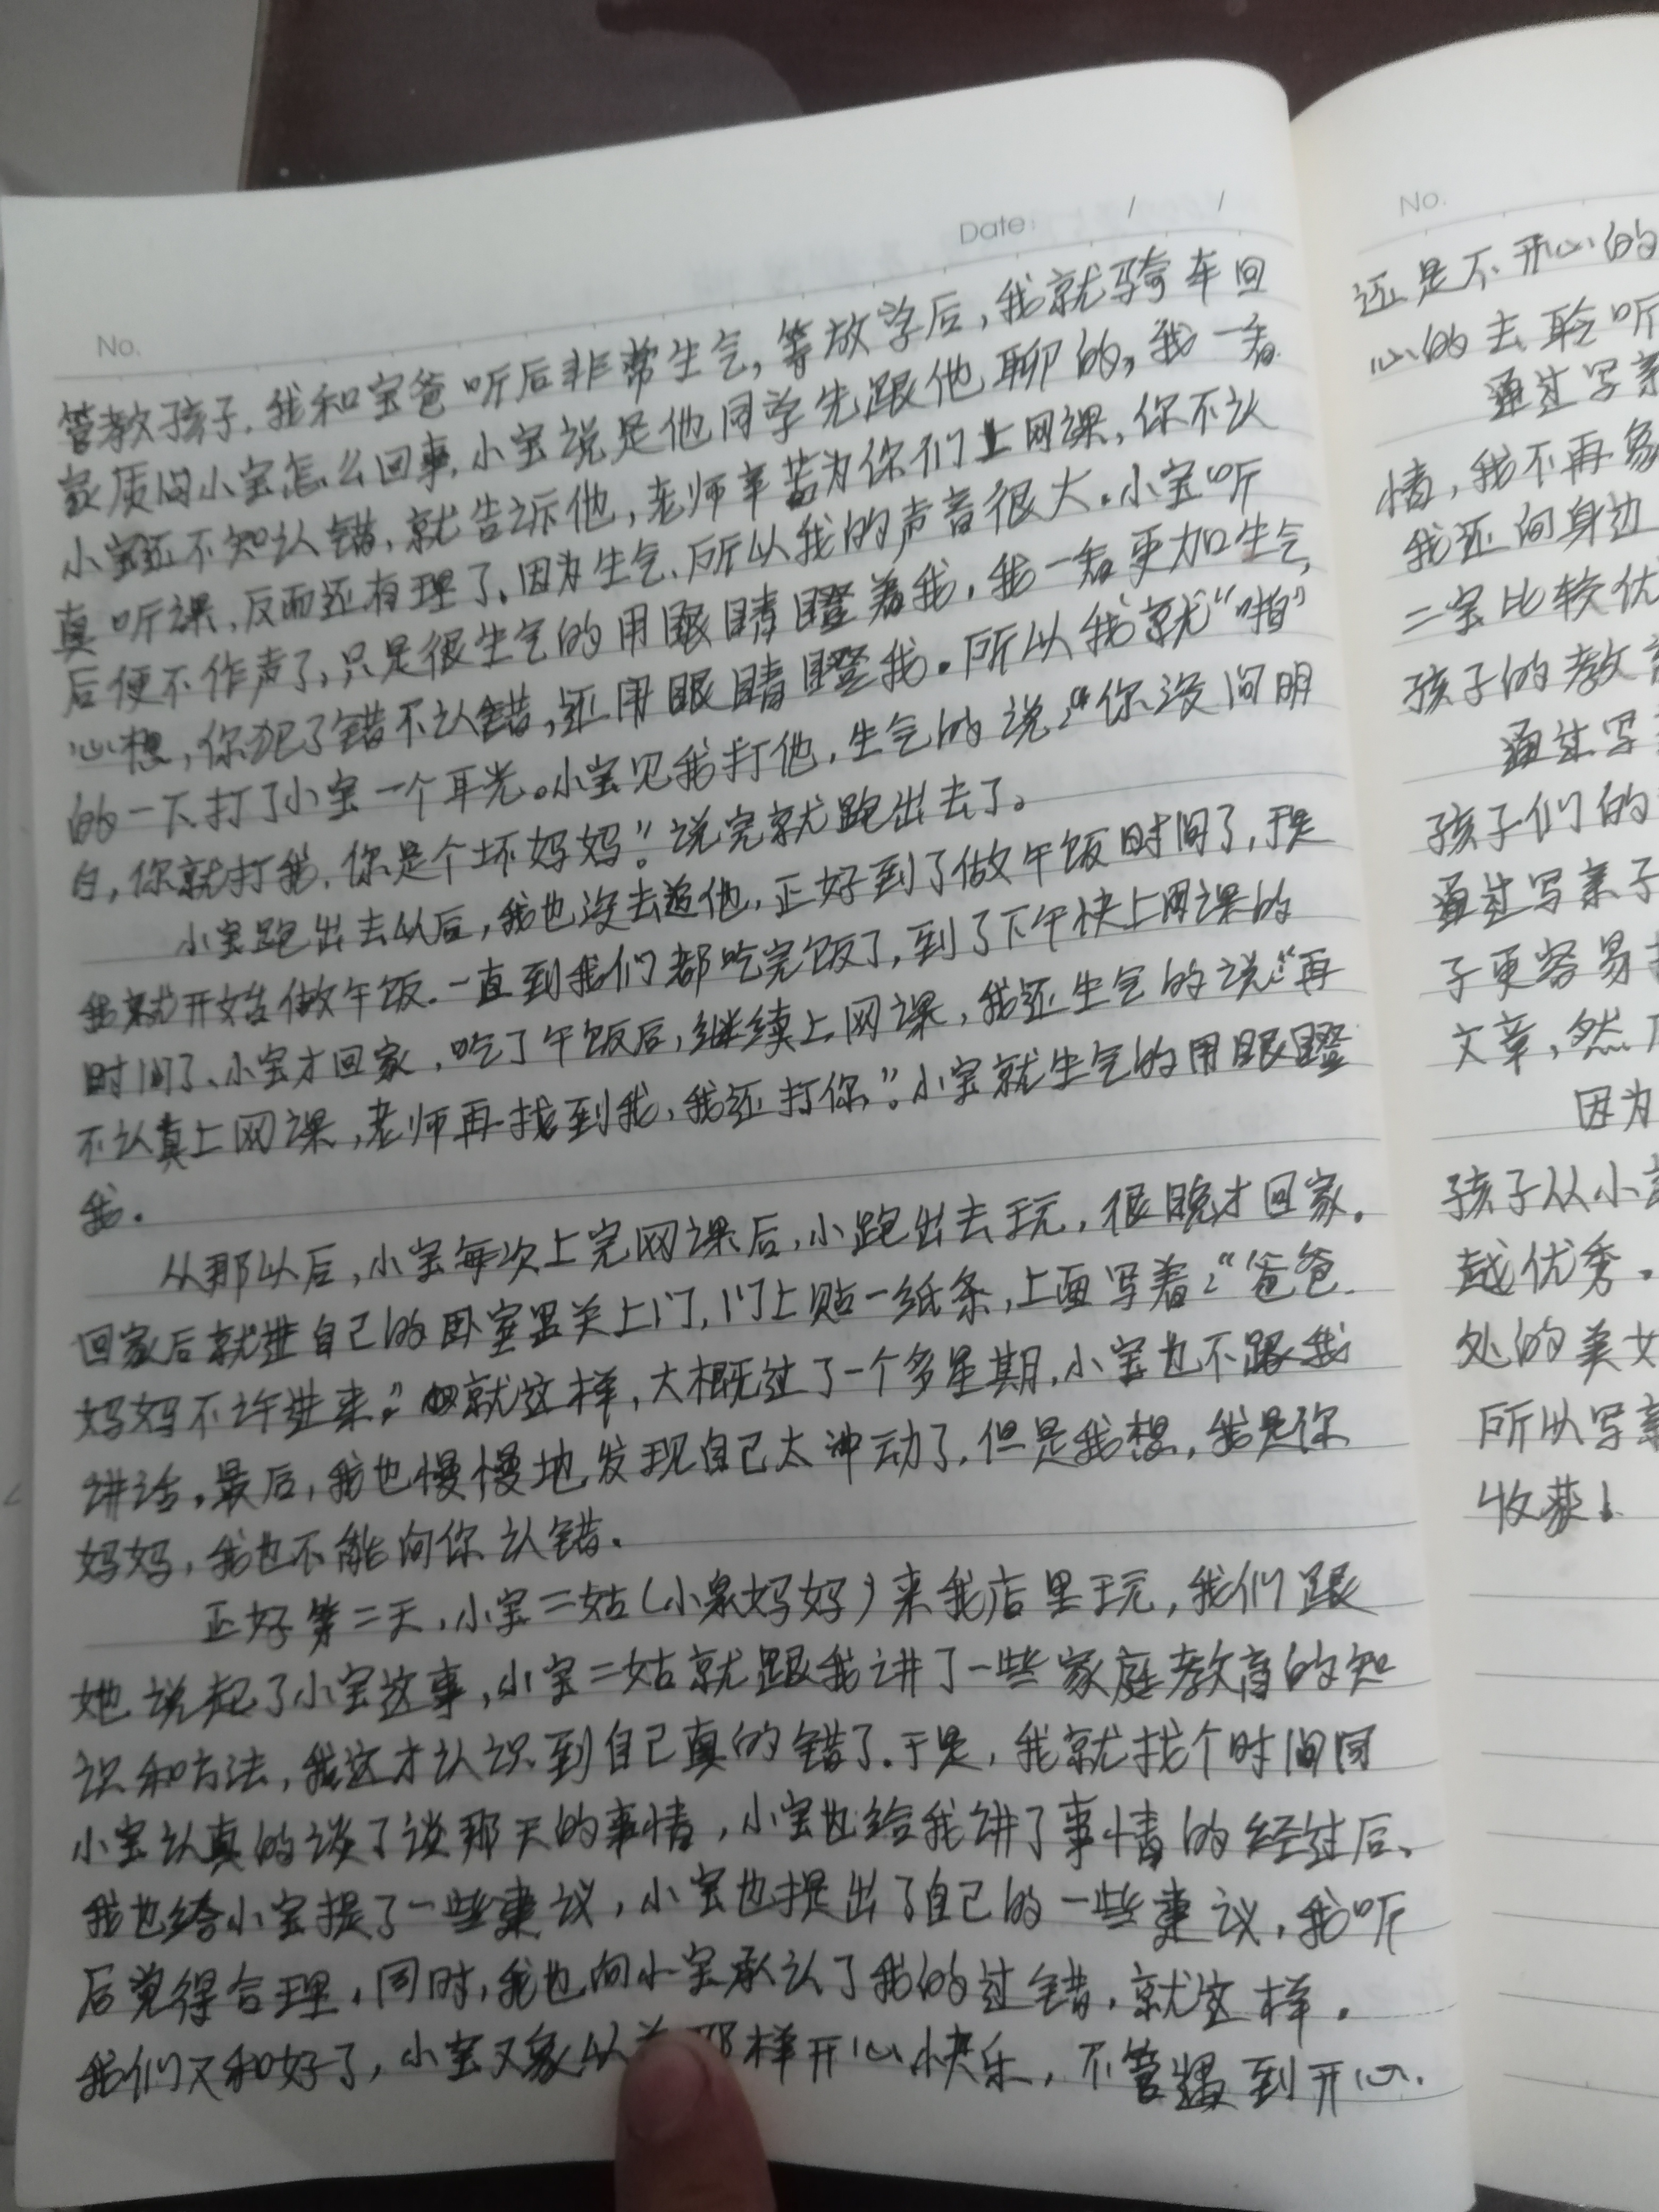 No.
Date / /
管教孩子.我和宝爸听后非常生气,等放学后,我就骑车回
家质问小宝怎么回事.小宝说是他同学先跟他聊的,我一看
小宝还不知认错,就告诉他,老师辛苦为你们上网课,你不认
真听课,反而还有理了.因为生气,所以我的声音很大.小宝听
后便不作声了,只是很生气的用眼睛瞪着我,我一看更加生气,
心想,你犯了错不认错,还用眼睛瞪我.所以我就“啪”
的一下打了小宝一个耳光。小宝见我打他,生气的说:“你没问明
白,你就打我.你是个坏妈妈”.说完就跑出去了。
小宝跑出去以后,我也没去追他,正好到了做午饭时间了,于是
我就开始做午饭.一直到我们都吃完饭了,到了下午快上网课的
时间了、小宝才回家,吃了午饭后,继续上网课,我还生气的说:“再
不认真上网课,老师再找到我,我还打你”.小宝就生气的用眼瞪
我.
从那以后,小宝每次上完网课后,小跑出去玩,很晚才回家.
回家后就进自己的卧室里关上门,门上贴一纸条,上面写着:“爸爸
妈妈不许进来”就这样,大概过了一个多星期,小宝也不跟我
讲话,最后,我也慢慢地发现自己太冲动了,但是我想,我是你
妈妈,我也不能向你认错.
正好第二天,小宝二姑(小泉妈妈)来我店里玩,我们跟
她说起了小宝这事,小宝二姑就跟我讲了一些家庭教育的知
识和方法,我这才认识到自己真的错了.于是,我就找个时间同
小宝认真的谈了谈那天的事情,小宝也给我讲了事情的经过后、
我也给小宝提了一些建议,小宝也提出了自己的一些建议,我听
后觉得合理,同时,我也向小宝承认了我的过错,就这样.
我们又和好了,小宝又象以 那样开心快乐,不管遇到开心.
No.
还是不开心的
心的去聆听
通过写亲
情,我不再象
我还向身边
二宝比较优
孩子的教育
通过写
孩子们的
通过写亲子
子更容易
文章,然后
因为
孩子从小
越优秀.
处的美女
所以写亲
收获!